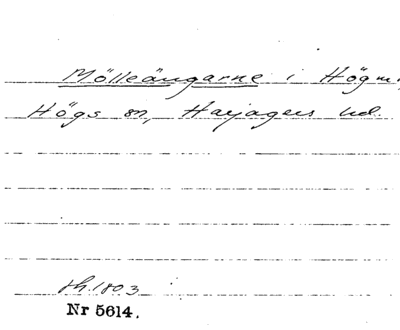 Mölleängarne i Högm.
Högs sn, Harjagers hd.
sk. 1803
Nr 5614.